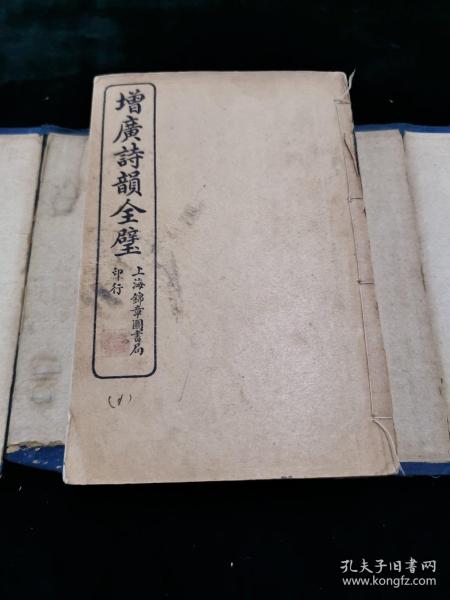 增廣詩韻全璧
上海錦章圖書局
印行
孔夫子旧书网
www.kongfz.com